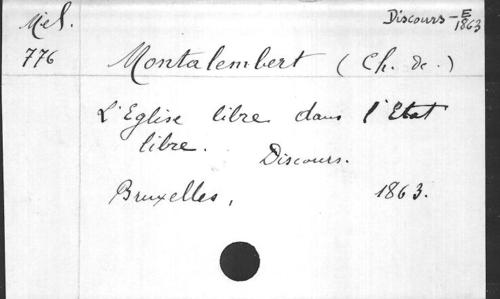 Mél.
776
Discours - E
1863
Montalembert (Ch. de.)
L'Eglise libre dans l'Etat
libre.
Discours.
Bruxelles, 1863.